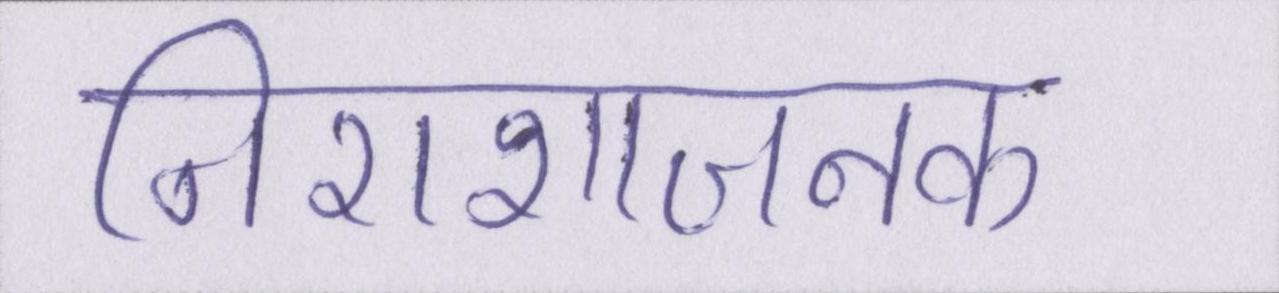 निराशाजनक